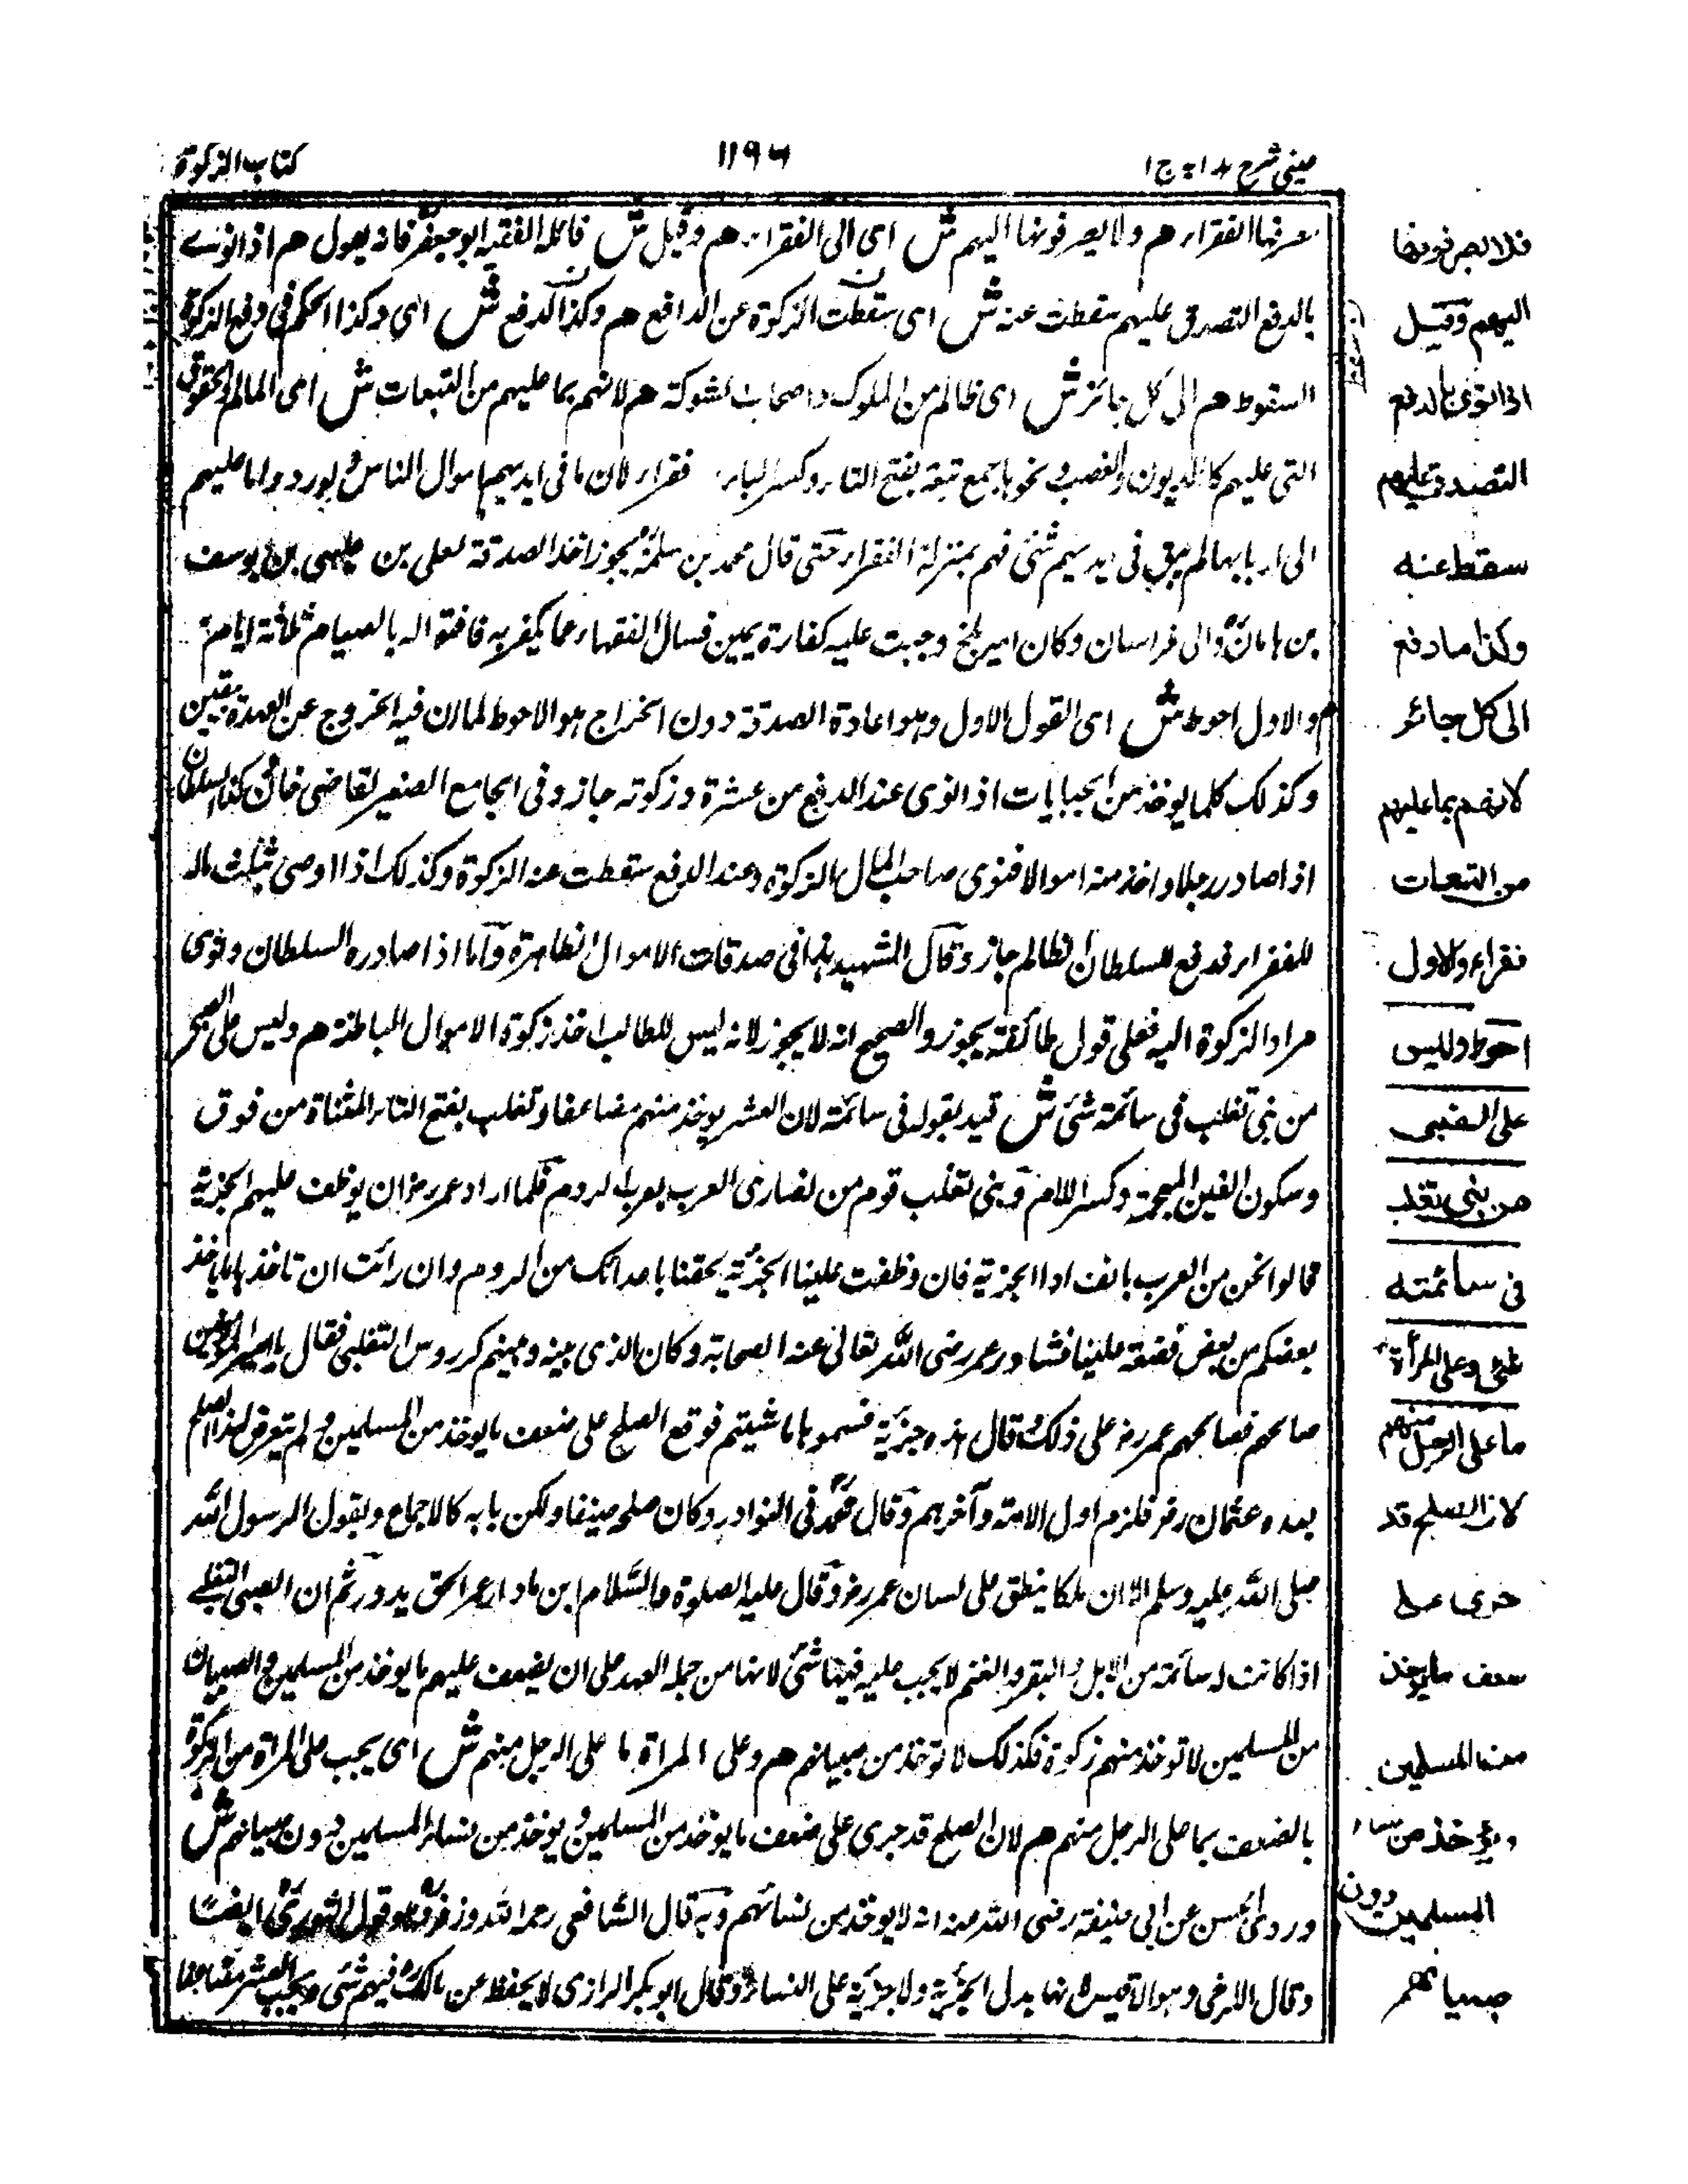 عینی شرح هدایة ج ا
۱۱۹۶
کتاب الزکوة
مصرفها الفقراء هم ولا یصرفونها الیهم ش ای الی الفقراء هم وقیل ش قائله الفقیه ابو جعفر فانه یقول هم اذا نوے
بالدفع التصدق علیهم سقطت عنه ش ای سقطت الزکوة عن الدافع هم وکذا الدفع ش ای وکذا الحکم فی دفع الزکوة
السقوط هم الی کل جائر ش ای ظالم من الملوک واصحاب الشوکة هم لانهم بما علیهم من التبعات ش ای المال والحقوق
التی علیهم کالدیون والغصب ونحوها جمع تبعة بفتح التاء وکسر الباء فقراء لان ما فی ایدیهم اموال الناس ولو ردوا ما علیهم
الی اربابها لم یبق فی یدیهم شئی فهم بمنزلة الفقراء حتی قال محمد بن سلمة یجوز اخذ الصدقة لعلی بن عیسی بن یوسف
بن ماهان والی خراسان وکان امیر بلخ وجبت علیه کفارة یمین فسال الفقهاء عما یکفر به فافتوا له بالصیام ثلثة ایام
هم والاول احوط ش ای القول الاول وهو اعادة الصدقة دون الخراج هو الاحوط لما ان فیه الخروج عن العهدة بیقین
وکذلک کلما یوخذ من الجبایات اذا نوی عند الدفع من عشرة وزکوته جاز وفی الجامع الصغیر لقاضی خان وکذا السلطان
اذا صادر رجلا واخذ منه اموالا فنوی صاحب المال الزکوة وعند الدفع سقطت عنه الزکوة وکذلک اذا اوصی بثلث ماله
للفقراء فدفع للسلطان الظالم جاز وقال الشهید هذا فی صدقات الاموال الظاهرة واما اذا صادره السلطان ونوی
هم اداء الزکوة الیه فعلی قول طائفة یجوز والصحیح انه لا یجوز لانه لیس للطالب اخذ زکوة الاموال الباطنة هم ولیس علی الصبی
من بنی تغلب فی سائمته شئی ش قید بقوله فی سائمته لان العشر یوخذ منهم مضاعفا وتغلب بفتح التاء المثناة من فوق
وسکون الغین المعجمة وکسر اللام وبنی تغلب قوم من نصاری العرب بقرب الروم فلما اراد عمر رض ان یوظف علیهم الجزیة
قالوا نحن من العرب بانف اداء الجزیة فان وظفت علینا الجزیة لحقنا باعدائک من الروم وان رائت ان تاخذ منا ما یاخذ
بعضکم من بعض فضعفه علینا فشاور عمر رضی الله تعالی عنه الصحابة وکان الذی بینه وبینهم کردوس التغلبی فقال یا امیر المومنین
صالحهم فصالحهم عمر رض علی ذلک وقال هذه جزیة فسموها ما شیتم فوقع الصلح علی ضعف ما یوخذ من المسلمین ولم یتعرض لهذا الصلح
بعده عثمان رض فلزم اول الامة وآخرهم وقال محمد فی النوادر وکان صلحه ضیفا ولکن بابه کالاجماع ولقول الرسول الله
صلی الله علیه وسلم الا ان ملکا ینطق علی لسان عمر رض وقال علیه الصلوة والسلام این ما دار عمر الحق یدور ثم ان الصبی التغلبے
اذا کانت له سائمة من الابل والبقر والغنم لا یجب علیه فیها شئی لانها من جملة العهد علی ان یضعف علیهم ما یوخذ من المسلمین والصبیان
من المسلمین لا توخذ منهم زکوة فکذلک لا توخذ من صبیانهم هم وعلی المراة ما علی الرجل منهم ش ای یجب علی المراة من الزکوة
بالضعف بما علی الرجل منهم هم لان الصلح قد جری علی ضعف ما یوخذ من المسلمین ویوخذ من نساء المسلمین دون صبیانهم ش
وروی الحسن عن ابی حنیفة رضی الله عنه انه لا یوخذ من نسائهم وبه قال الشافعی رحمه الله وزفر وهو قول الثوری ایضا
وقال الکرخی وهو الاقیس لانها بدل الجزیة ولا جزیة علی النساء وقال ابو بکر الرازی لا یحفظ عن مالک فیهم شئی ویجب العشر مضاعفا
فلا یصرفونها
الیهم وقیل
اذا نوی بالدفع
التصدق علیهم
سقط عنه
وکذا ما دفع
الی کل جائر
لانهم بما علیهم
من التبعات
فقراء والاول
احوط ولیس
علی الصبی
من بنی تغلب
فی سائمته
شئی وعلی المرأة
ما علی الرجل منهم
لان الصلح قد
جری علی
ضعف ما یوخذ
من المسلمین
ویؤخذ من نساء
المسلمین دون
صبیانهم